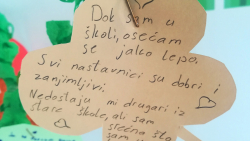 Dok sam u
školi, osećam
se jako lepo.
Svi nastavnici su dobri i
zanimljivi.
Nedostaju mi drugari iz
stare škole, ali sam
srećna što
sam u